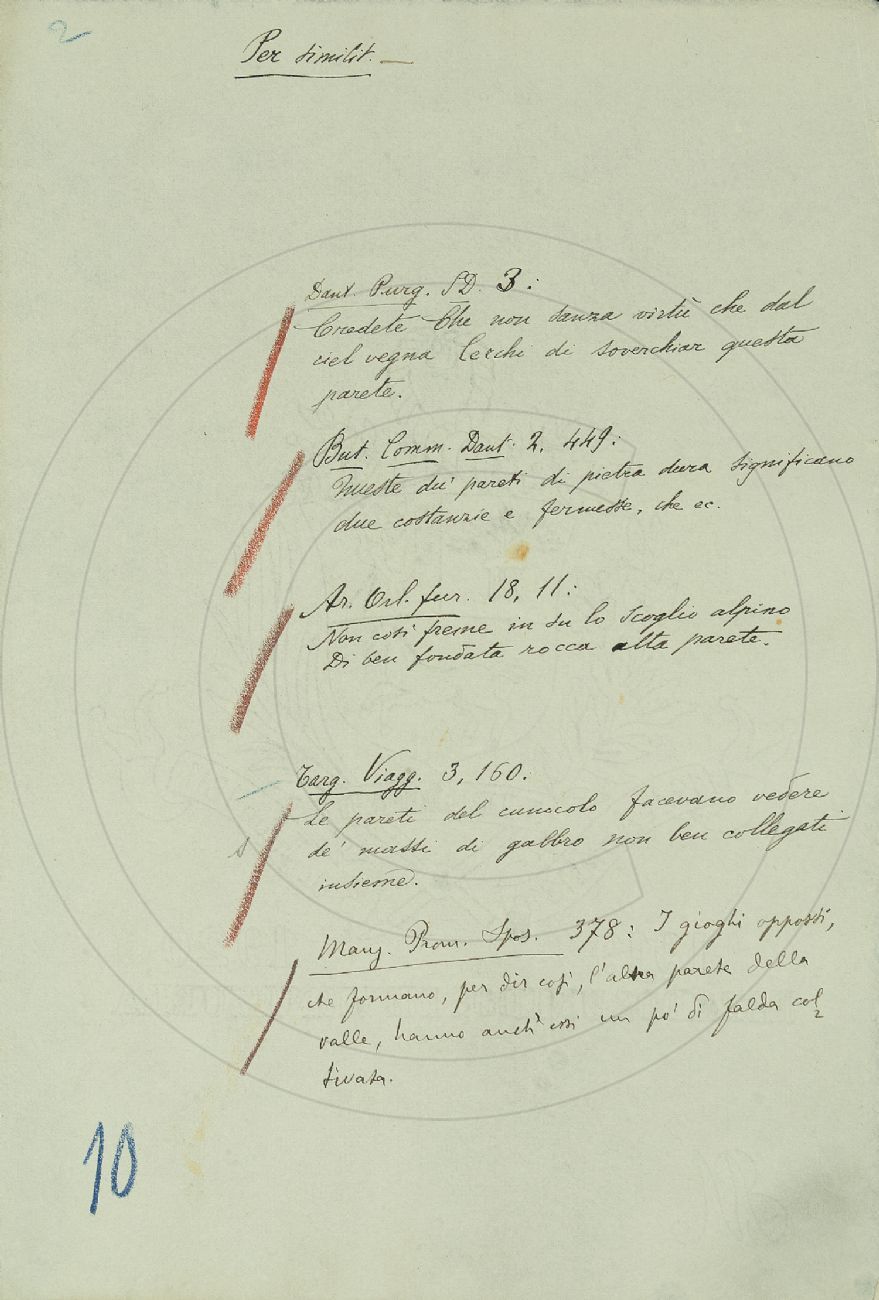 2
Per similit. —
Dant. Purg. SD. 3:
Credete Che non sanza virtù che dal
ciel vegna Cerchi di soverchiar questa
parete.
But. Comm. Dant. 2, 449:
Queste du' pareti di pietra dura significano
due costanzie e fermesse, che ec.
Ar. Orl. fur. 18, 11:
Non così freme in su lo scoglio alpino
Di ben fondata rocca alta parete.
Targ. Viagg. 3, 160:
Le pareti del cunocolo facevano vedere
de' massi di gabbro non ben collegati
insieme.
S
Manz. Prom. Spos. 378: I gioghi opposti,
che formano, per dir così, l'altra parete della
valle, hanno anch'essi un po' di falda col=
tivata.
10